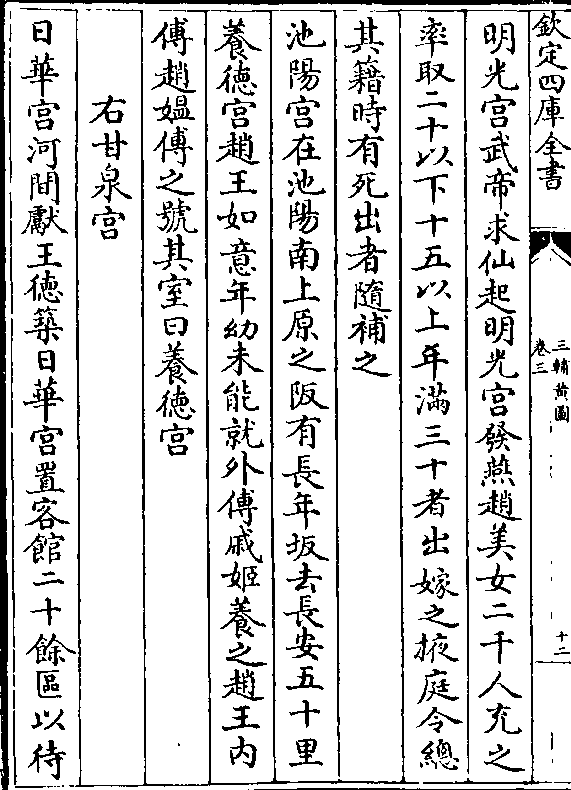 欽定四庫全書
三輔黄圖
卷三
十二
明光宫武帝求仙起明光宫發燕趙美女二千人充之
率取二十以下十五以上年滿三十者出嫁之掖庭令總
其籍時有死出者隨補之
池陽宫在池陽南上原之阪有長年坂去長安五十里
養徳宫趙王如意年幼未能就外傅戚姬養之趙王内
傅趙媪傅之號其室曰養徳宫
右甘泉宫
日華宫河間獻王徳築日華宫置客館二十餘區以待